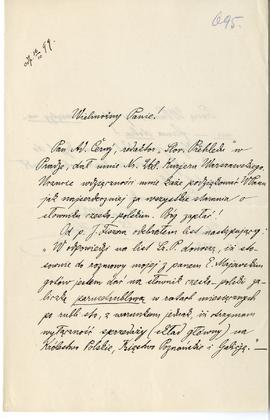 695.
Wielmożny Panie!
Pan Ad. Černý, redaktor „Slov. Přehledu" w
Pradze, dał mnie Nr. 281. Kurjera Warszawskiego.
wdzięczności mnie każe podziękować WPanu
jak najserdeczniej za wszystkie starania o
słowniku czesko-polskim. Bóg zapłać!
Od p. J. odebrałem list następujący:
„W odpowiedzi na list Sz. P. donoszę, iż sto-
sownie do rozmowy mojej z panem E. Majewskim
gotów jestem dać na słownik czesko-polski za-
liczkę parusetrublową w ratach miesięcznych
po rubli sto, z warunkiem jednak, iż otrzymam
wyłączność sprzedaży (skład główny) na
Królestwo Polskie, Księstwo Poznańskie i Galicją."